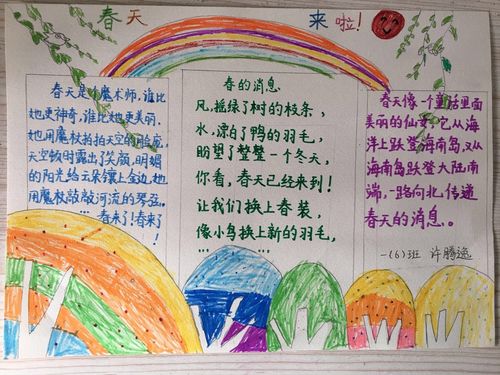 春天来啦!
春天是个魔术师,谁比
她更神奇,谁比她更美丽.
她用魔杖拍拍天空的脸庞,
天空顿时露出了笑颜,明媚
的阳光给云朵镶上金边,她
用魔杖敲敲河流的琴弦..
…春来了!春来了
!
春的消息
风,摇绿了树的枝条,
水,漂白了鸭的羽毛,
盼望了整整一个冬天,
你看,春天已经来到!
让我们换上春装,
像小鸟换上新的羽毛,
……
春天像一个童话里面
美丽的仙女,它从海
洋上跃登海南岛,又从
海南岛跃登大陆南
端,一路向北,传递
春天的消息。
一(6)班 许腾逸